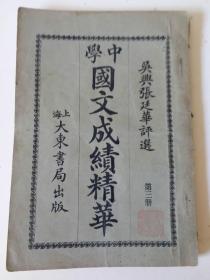 吳興張廷華評選
第三册
中學
國文成績精華
上海
大東書局出版